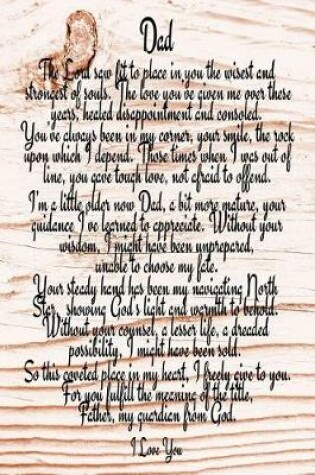 Dad
The Lord saw fit to place in you the wisest and
strongest of souls. The love you've given me over these
years, healed disappointment and consoled.
You've always been in my corner, your smile, the rock
upon which I depend. Those times when I was out of
line, you gave tough love, not afraid to offend.
I'm a little older now Dad, a bit more mature, your
guidance I've learned to appreciate. Without your
wisdom, I might have been unprepared,
unable to choose my fate.
Your steady hand has been my navigating North
Star, showing God's light and warmth to behold.
Without your counsel, a lesser life, a dreaded
possibility, I might have been sold.
So this coveted place in my heart, I freely give to you.
For you fulfill the meaning of the title,
Father, my guardian from God.
I Love You